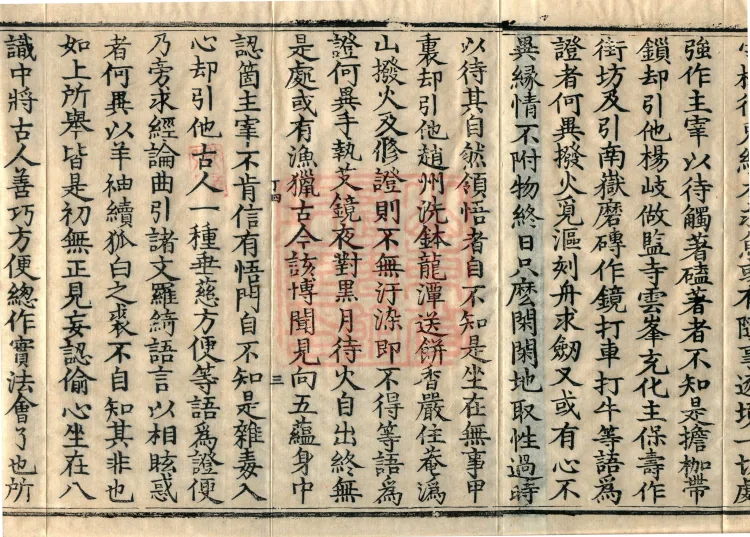 隨事逐境一切處
強作主宰以待觸著磕著者不知是擔枷帶
鎖却引他楊岐做監寺雲峯充化主保壽作
街坊及引南嶽磨磚作鏡打車打牛等語爲
證者何異撥火覓漚刻舟求劒又或有心不
異緣情不附物終日只麽閑閑地取性過時
以待其自然領悟者自不知是坐在無事甲
裏却引他趙州洗鉢龍潭送餅香嚴住菴溈
山撥火及修證則不無汙染即不得等語爲
證何異手執艾鏡夜對黑月待火自出終無
是處或有漁獵古今該博聞見向五蘊身中
丁四 三
認箇主宰不肯信有悟門自不知是雜毒入
心却引他古人一種垂慈方便等語爲證便
乃旁求經論曲引諸文羅綺語言以相眩惑
者何異以羊袖續狐白之裘不自知其非也
如上所舉皆是初無正見妄認偷心坐在八
識中將古人善巧方便總作實法會了也所